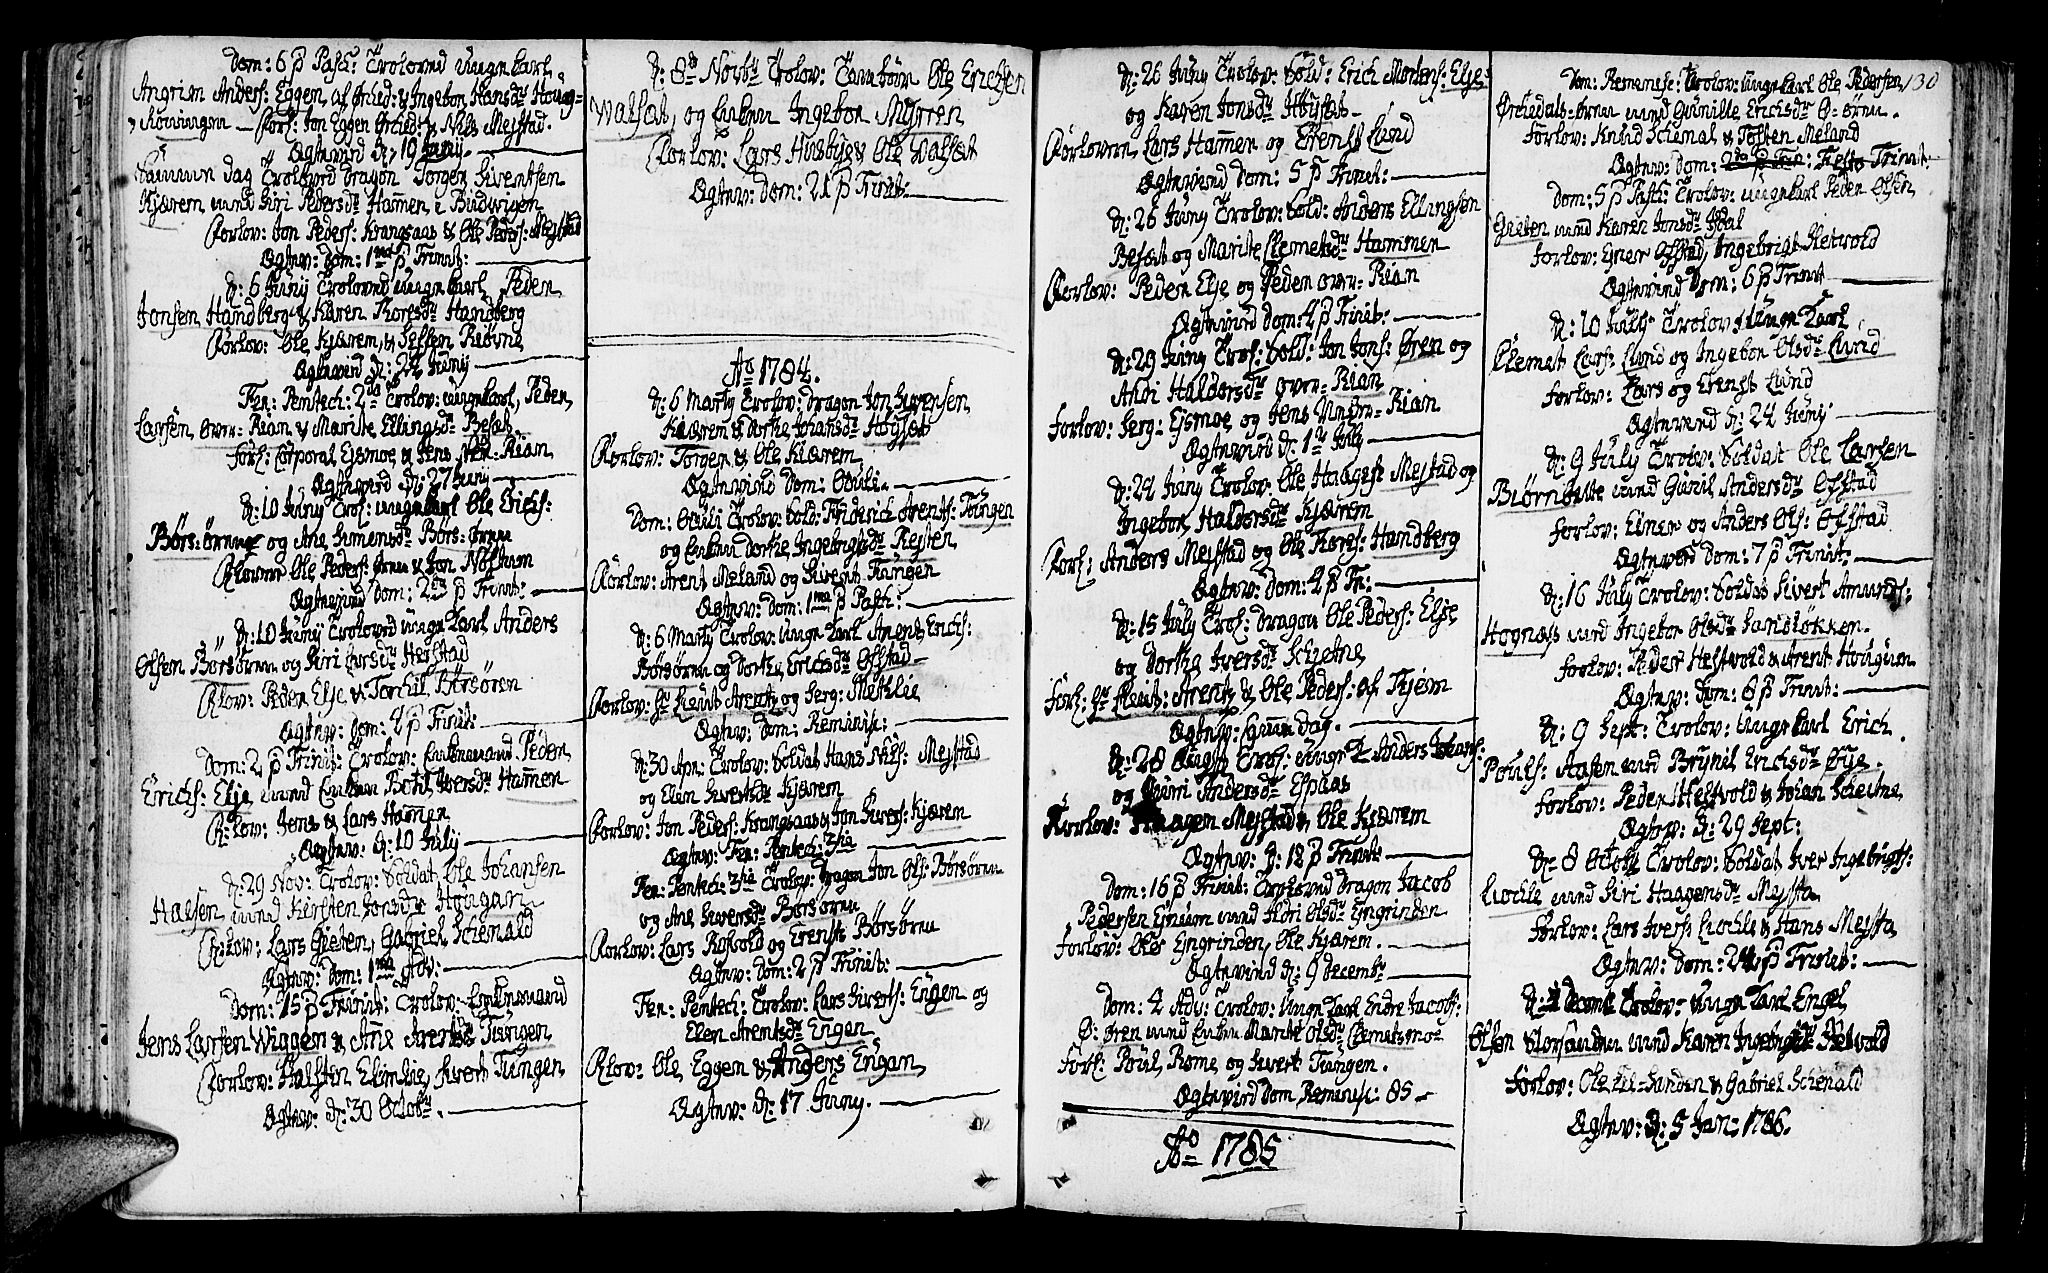 Dom: 6 p Pasch: Trolovd Ungkarl
Angrim Anders: Eggen, af Ørked: & Ingebor Hansdr
Forl: Jon Eggen Ørked: & Nils Mejstad.
Ægtewd d: 19 Juny.
Samme dag Trolovd Dragon Torger Sivertsen
Kjærem med Siri Pedersdr Hamen
Forlov: Jon Peders: Krangsaas & Ole Peders: Mejstad
Ægtev: Dom: 1me p Trinit:
d: 6 Juny Trolovd ungkarl Peder
Jonsen Handberg & Karen Toresdr Handberg
Forlov: Ole Kjærem, &
Ægtevd d: 24 Juny
Fer: Pentech: 2da Trolov: ungkarl Peder
Larsen over-Rian & Marite Ellingsdr Besæt
Forl: Corporal Ejsmoe & Jens Rian
Ægtevd d: 27 Juny
d: 10 Juny Trol: ungkarl Ole Erichs:
Børs:ørnn og Ane Simensdr Børs:ørnn
Ole Peders: & Jon
Ægteviid Dom: 2da p Trinit:
d: 10 Juny Trolovd ungkarl Anders
Olsen Børsørnn og Siri Larsdr Herstad
Forlov: Peder Elje & Børsøren
Ægtev: Dom: 4 p Trinit:
Dom: 2 p Trinit: Trolov: Enkemand Peder
Erichs: Elje med Enken Beret Iversdr Hamen
Forlov: Jens & Lars Hamen
Ægtev: d: 10 July
d: 29 Nov: Trolov: Soldat Ole Johansen
Halsen med Kirsten Jonsdr Hougan
Forlov: Lars Gieten, Gabriel Schenald
Ægtev: Dom: 1ma Adv:
Dom: 15 p Trinit: Trolov: Enkemand
Jens Larsen Wiggen & Ane Arentsdr Tungen
Forlov: Halsten Elinlie, Sivert Tungen
Ægtev: d: 30 Octobr.
d: 8de Novbr Trolov: Ole Erichsen
Walsæt, og Enken Ingebor
Forlov: Lars Husbye & Ole Walsæt
Ægtev: Dom: 21 p Trinit:
Ao 1784.
d: 6 Marty Trolov: Dragon Jon Iversen
Kjærem & Dortke Johansdr Høysæt
Forlov: Torger & Ole Kjærem
Ægteviid Dom: Oculi.
Dom: Oculi Trolov: Sold: Friderich Arents: Tungen
og Enken Dortke Ingebrigtsdr Resten
Forlov: Arent Meland og Sivert Tungen
Ægtev: Dom: 1ma p Pasch:
d: 6 Marty Trolov: Ungkarl Arent Erichs:
Børsørnn og Dortke Erichsdr Ofstad
Forlov: Hr Leut: Arentz og Serg: Methlie
Ægtev: Dom: Reminisc:
d: 30 Apr: Trolov: Soldat Hans Nils: Mejstad
og Elen Sivertsdr Kjærem
Forlov: Jon Peders: Krangsaas & Jon Sivers: Kjærem
Ægtev: Fer: Pentech: 3tie
Fer: Pentech: 3tie Trolov: Dragon Jon Ols: Børsørnn
og Ane Siversdr Børsørnn
Forlov: Lars Rofvold og Erenst Børsørnn
Ægtev: Dom: 2 p Trinit:
Fer: Pentech: Trolov: Lars Siverts: Engen og
Elen Arentsdr Engen
Forlov: Ole Eggen & Anders Engan
Ægtev: d: 17 Juny.
d: 26 Juny Trolov: Sold: Erich Mortens: Elje
og Karen Jonsdr Høysæt
Forlovere Lars Hamer og Erenst Lund
Ægteviid Dom: 5 p Trinit:
d: 26 Juny Trolov: Sold: Anders Ellingsen
Besæt og Marite Clemetsdr Hammen
Forlov: Peder Elje og Peder over-Rian
Ægteviid Dom: 4 p Trinit:
d: 29 Juny Trol: Sold: Jon Jons: Øren og
Aldi Haldorsdr over-Rian
Forlov: Serg: Ejsmoe og Jens Under-Rian
Ægteviid d: 1te July
d: 24 Juny Trolov: Ole Haages: Mejstad og
Ingebor Haldorsdr Kjærem
Forl: Anders Mejstad og Ole Tores: Handberg
Ægtev: Dom: 4 p Tr:
d: 15 July Trol: Dragon Ole Peders: Elje
og Dortke Iversdr Schjetne
Forl: Hr Leut: Arentz & Ole Peders: af Tjem
Ægtev: Samme dag.
d: 28 Aug: Trol: ungkarl Anders Johans:
og Gurri Andersdr Espaas
Forlov: Haagen Mejstad & Ole Kjærem
Ægtev: d: 18 p Trinit:
Dom: 16 p Trinit: Trolovd Dragon Jacob
Pedersen med Aldri Olsdr Eyngrinden
Forlov: Eyngrinden, Ole Kjærem.
Ægteviid d: 9 Decembr
Dom: 4 Adv: Trolov: Ungkarl Endre Jacobs:
Ø: Øren med Enken Marite Olsdr Clemetsmoe
Forl: Poul Rome og Sivert Tungen.
Ægteviid Dom Reminisc: 85
Ao 1785
Dom: Reminisc: Trolov: ungkarl Ole Pedersen 130
Ørkedals-Ørnn med Gunnille Erichsdr Ø:ørnn.
Forlov: Knud Schenal & Tosten Meland
Ægtev: Dom: Trinit
Dom: 5 p Pasch: Trolov: ungkarl Peder Olsen
Gieten med Karen Jonsdr
Forlov: Ejner Ofstad, Ingebrigt Hetvold
Ægteviid Dom: 6 p Trinit
d: 10 July Trolov: Ungkarl
Clemet Lars: Lund og Ingebor Olsdr Lund
Forlov: Lars og Erenst Lund
Ægteviid d: 24 Juny
d: 9 July Trolov: Soldat Ole Larsen
Biørnbette med Gunil Andersdr Ofstad
Forlov: Elner og Anders Ols: Ofstad
Ægteved Dom: 7 p Trinit:
d: 16 July Trolov: Soldat Sivert Amunds:
Hognæs med Ingebor Olsdr Sandløkken.
Forlov: Peder Hestvold & Arent Hougum
Ægtev: Dom: 6 p Trinit:
d: 9 Sept: Trolov: Ungkarl Erich
Pouls: Aasen med Brynel Erichsdr Øye.
Forlov: Peder Hestvold & Johan Schetne
Ægtev: d: 29 Sept:
d: 8 Octobr Trolov: Soldat Iver Ingebrigts:
Lochle med Siri Haagensdr Mejsta
Forlov: Lars Ivers: Lochle & Hans Mejsta
Ægtev: Dom: 24 p Trinit:
d: Trolov: Ungkarl Engel
Olsen Storsanden med Karen Ingebrigtsdr Hetvold
Forlov: Ole Lil-Sanden & Gabriel Schenald
Ægtev: d: 5 Jan: 1786.